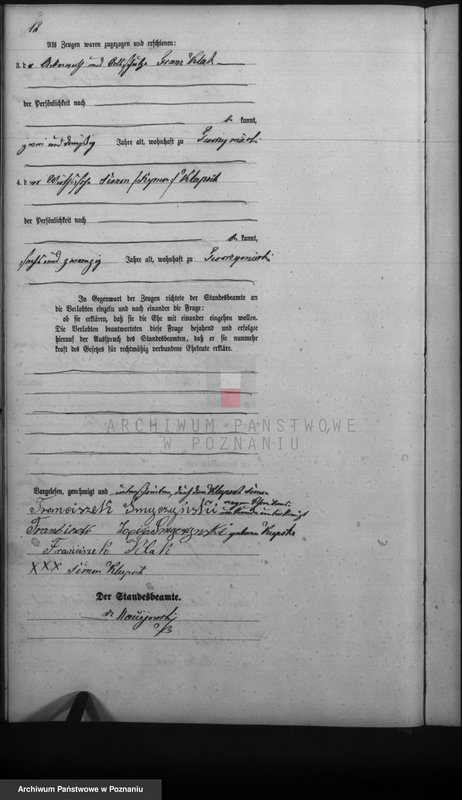 12
Als Zeugen waren zugezogen und erschienen:
3. der Ackerwirth und Ortsschulze Franz Klak
der Persönlichkeit nach
be kannt,
zwei und dreißig Jahre alt, wohnhaft zu
4. der Wirthssohn Simon /Szymon/ Klupsch
der Persönlichkeit nach
be kannt,
sechs und zwanzig Jahre alt, wohnhaft zu
In Gegenwart der Zeugen richtete der Standesbeamte an
die Verlobten einzeln und nach einander die Frage:
ob sie erklären, daß sie die Ehe mit einander eingehen wollen.
Die Verlobten beantworteten diese Frage bejahend und erfolgte
hierauf der Ausspruch des Standesbeamten, daß er sie nunmehr
kraft des Gesetzes für rechtmäßig verbundene Eheleute erkläre.
ARCHIWUM PAŃSTWOWE
W POZNANIU
Vorgelesen, genehmigt und unterschrieben, durch den Simon
wegen Schreibens-
Franciszek Smyczyński unkunde unterkreuzt
geborene
Franciszek Klak
XXX Simon
Der Standesbeamte.
Archiwum Państwowe w Poznaniu